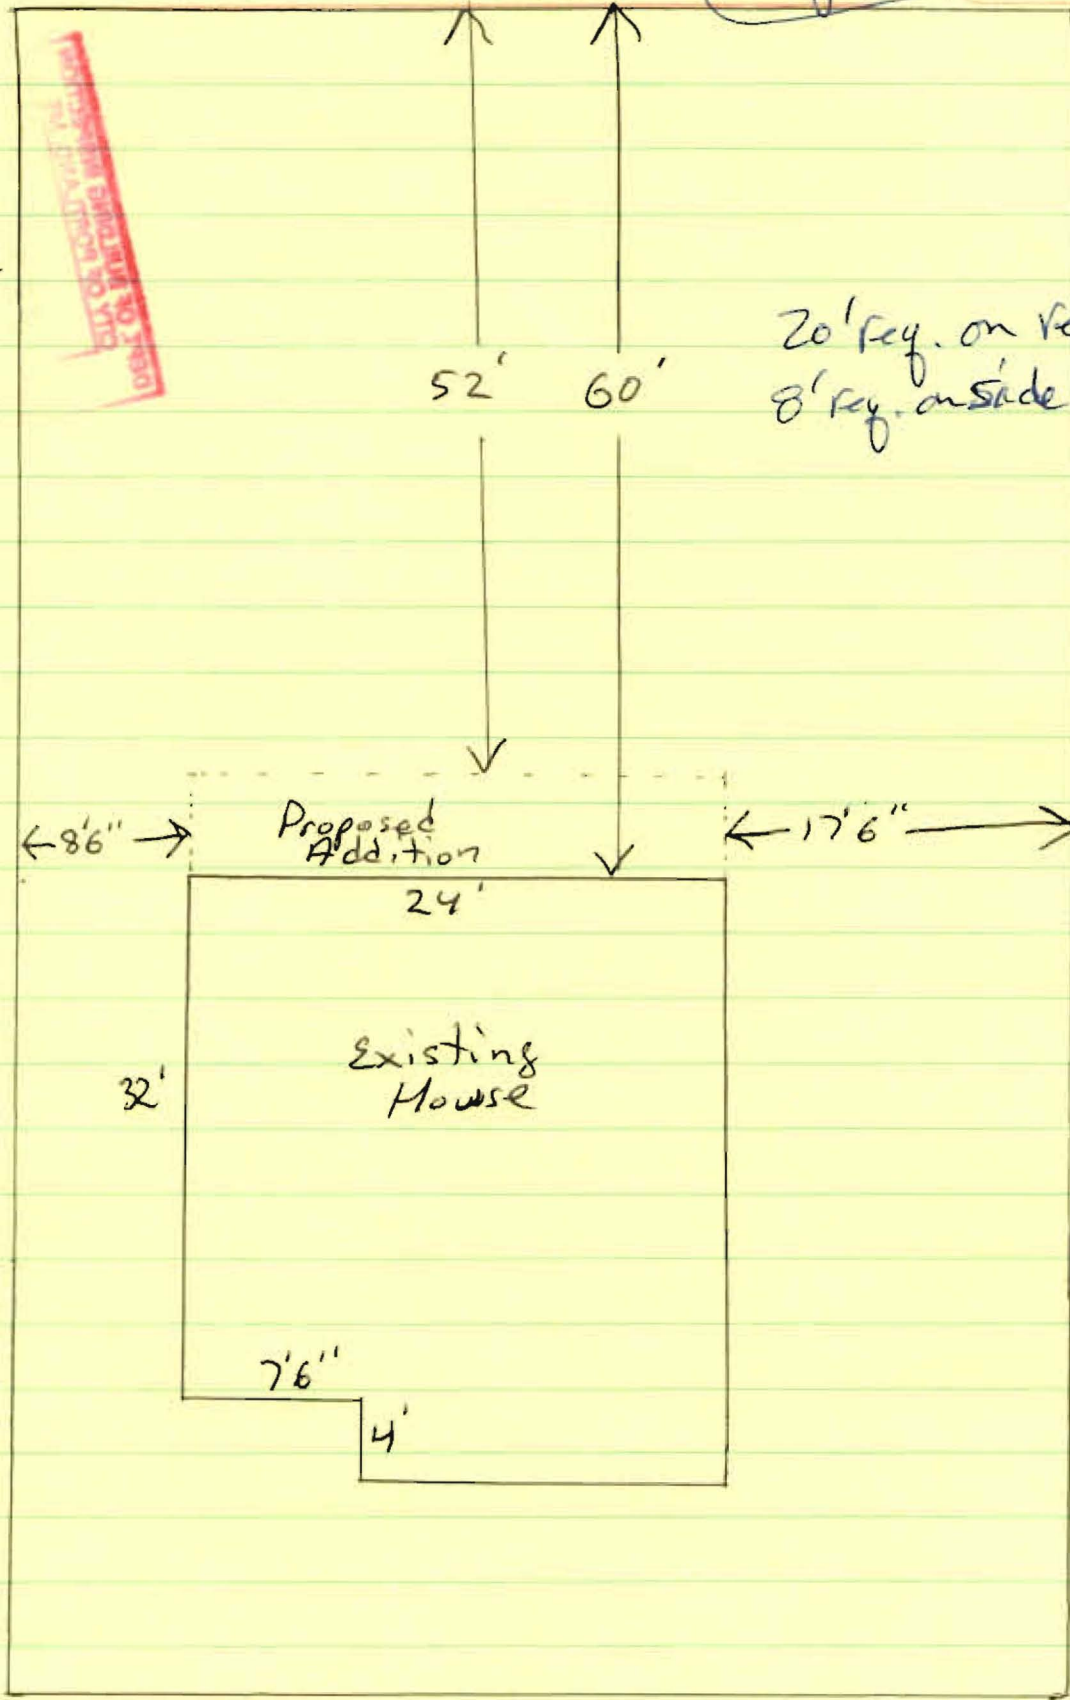 52' 60'
20' req. on
8' req. on side
8'6"
Proposed
Addition
17'6"
24'
Existing
House
32'
7'6"
4'